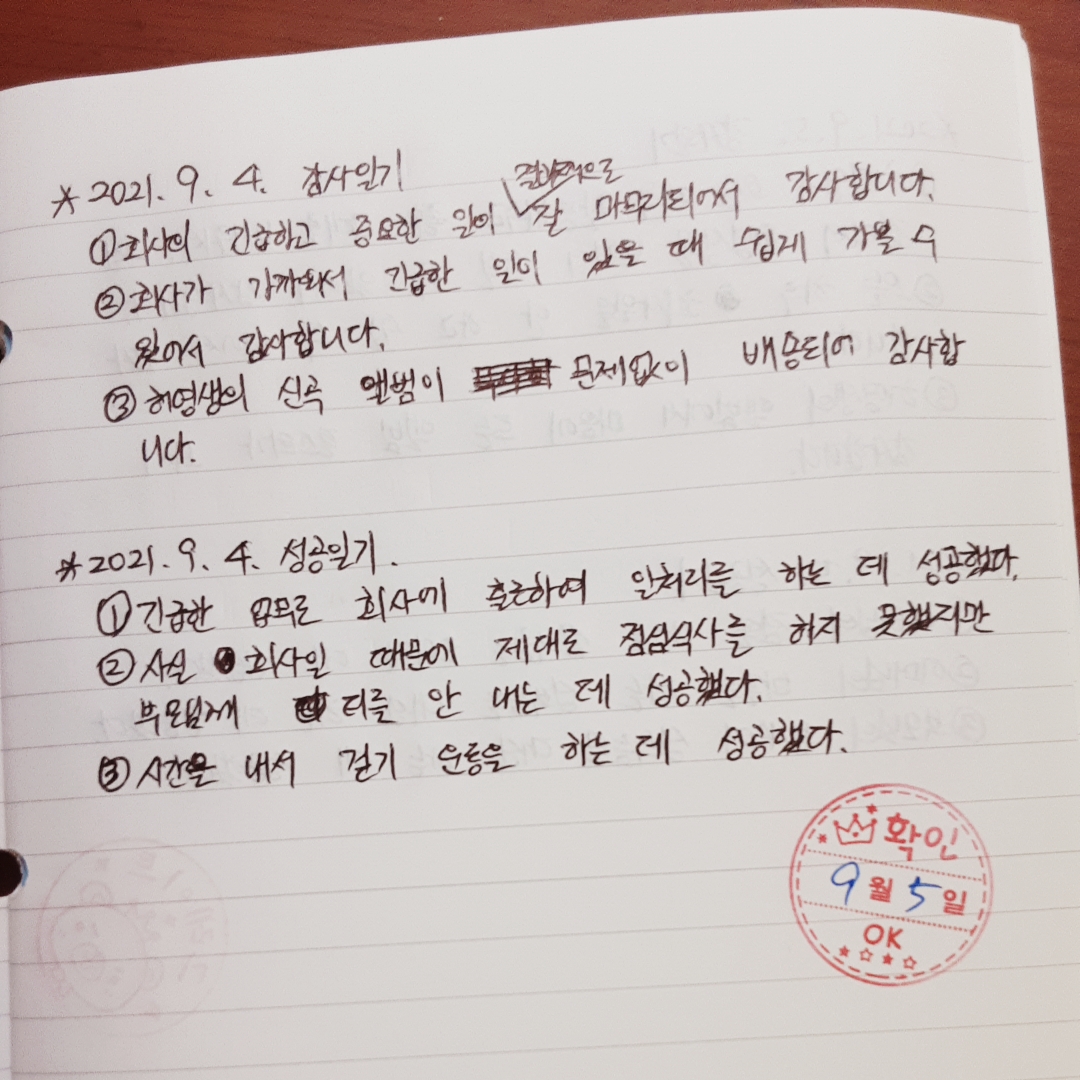 * 2021. 9. 4. 감사일기
① 회사의 긴급하고 중요한 일이 결과적으로 잘 마무리되어서 감사합니다.
② 회사가 가까워서 긴급한 일이 있을 때 쉽게 가볼 수
있어서 감사합니다.
③ 허영생의 신곡 앨범이 문제없이 배송되어 감사합
니다.
* 2021. 9. 4. 성공일기.
① 긴급한 업무로 회사에 출근하여 일처리를 하는 데 성공했다.
② 사실 회사일 때문에 제대로 점심식사를 하지 못했지만
부모님께 티를 안 내는 데 성공했다.
③ 시간을 내서 걷기 운동을 하는 데 성공했다.
확인
9월 5일
OK